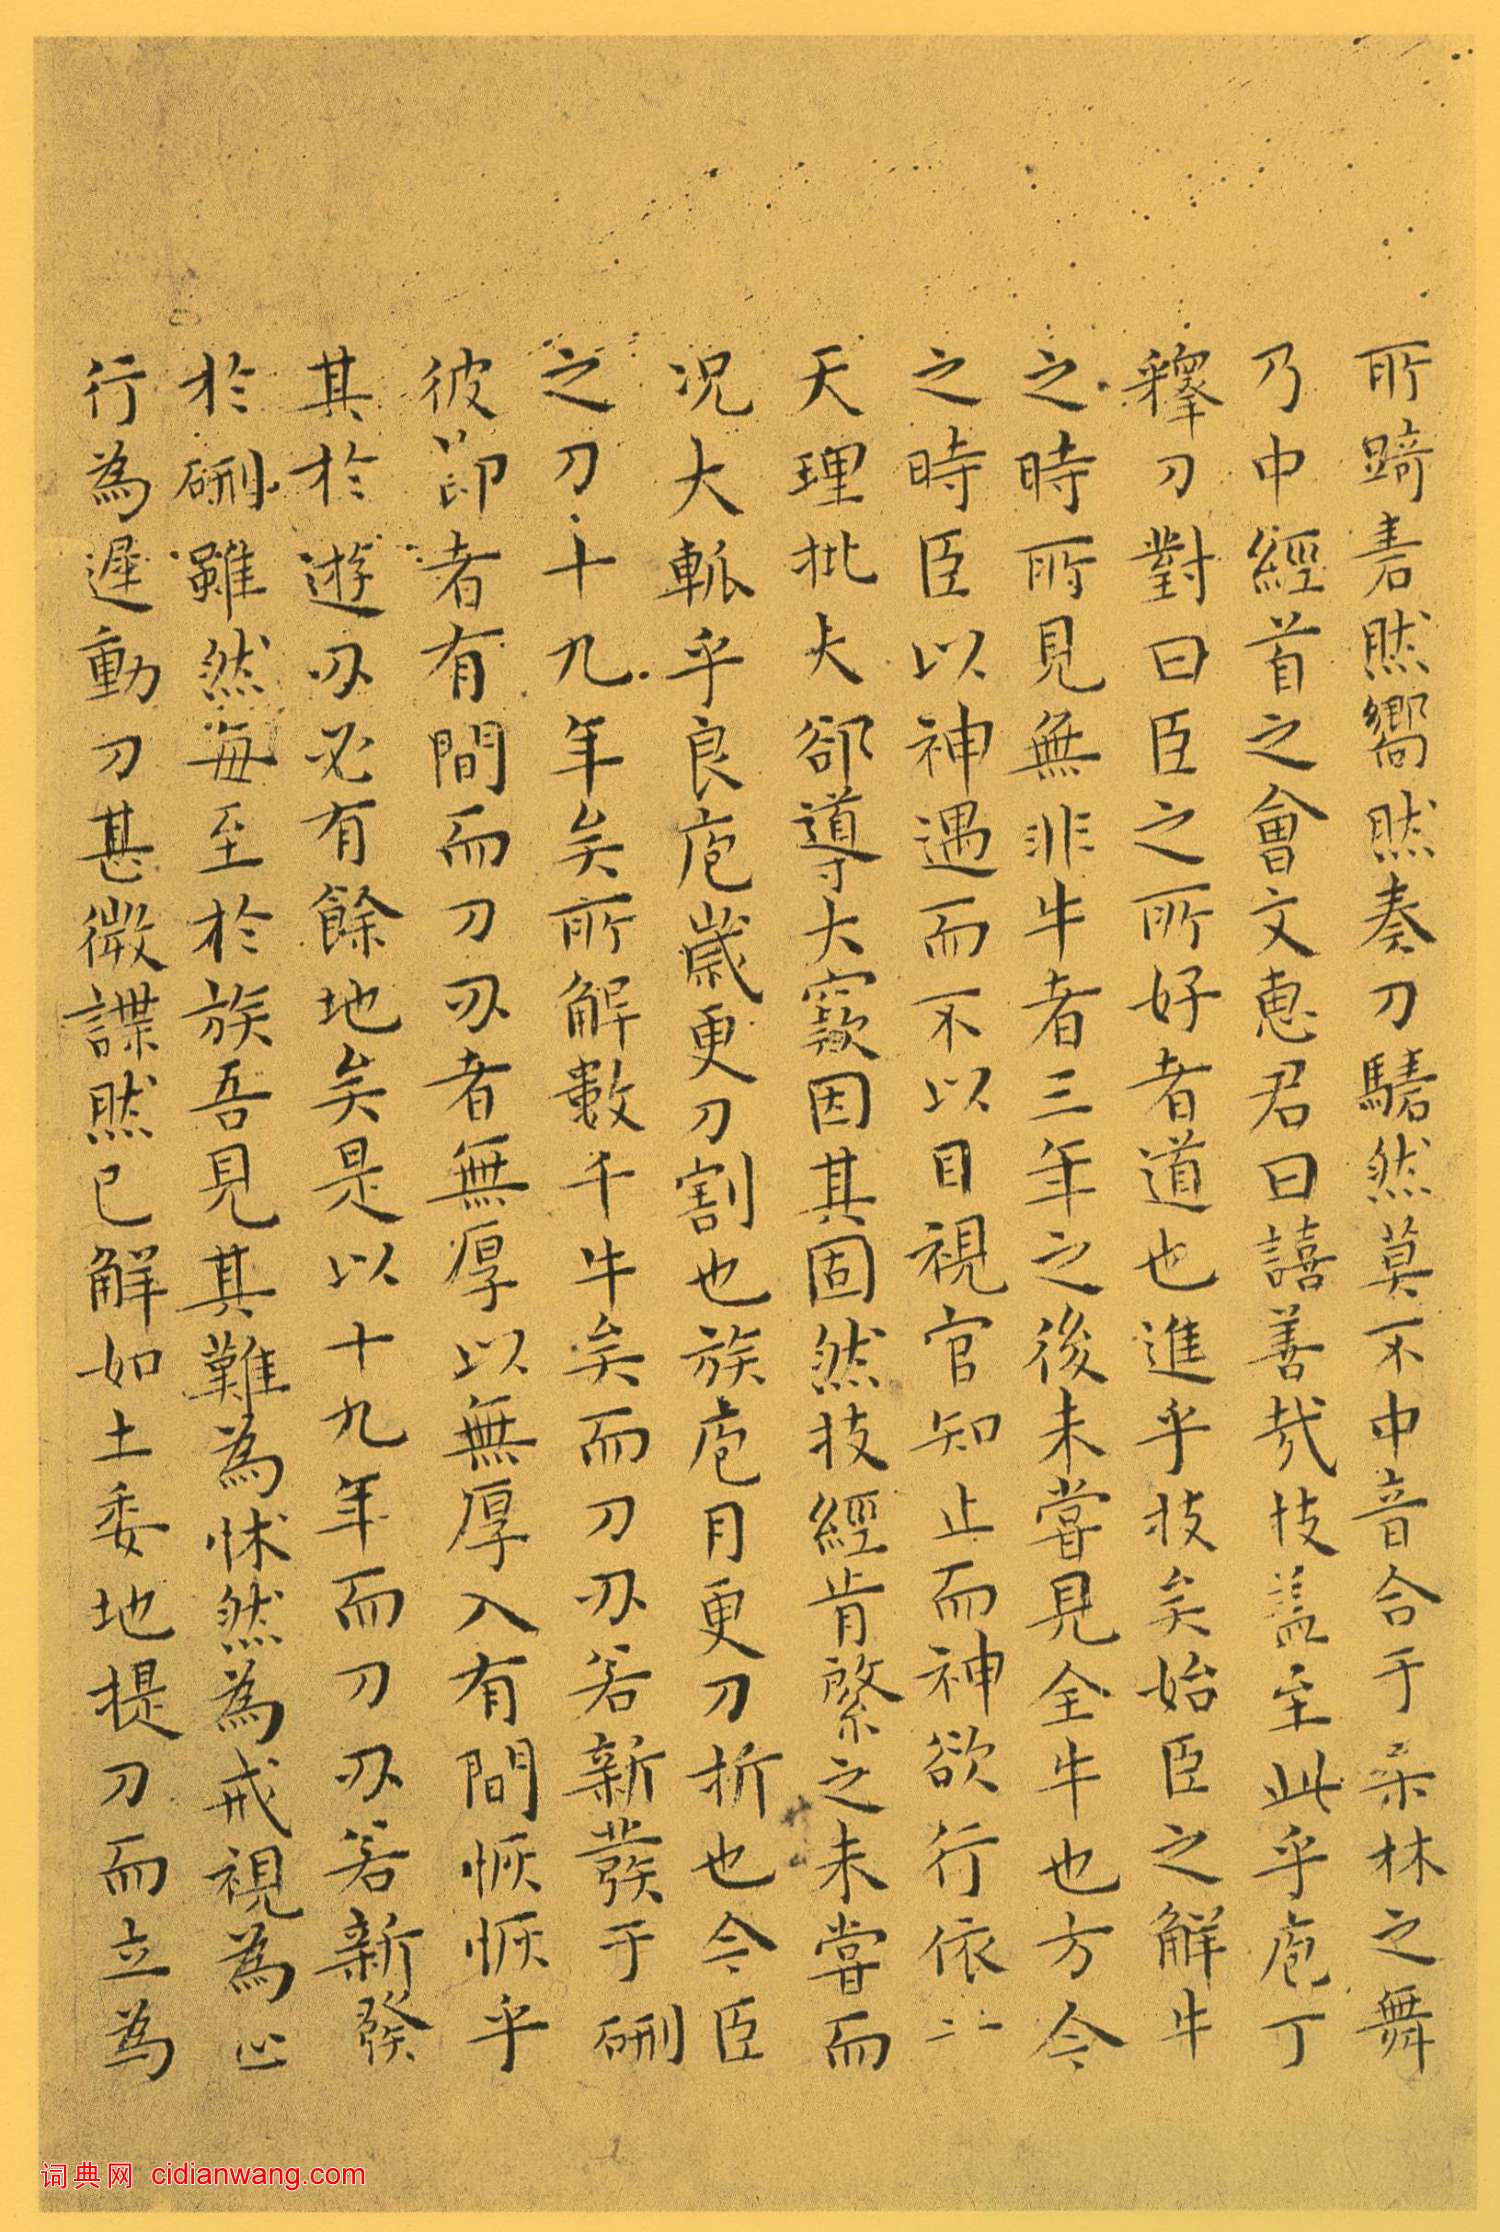 所踦砉然嚮然奏刀騞然莫不中音合于桒林之舞
乃中經首之會文惠君曰譆善哉技盖至此乎庖丁
釋刀對曰臣之所好者道也進乎技矣始臣之解牛
之時所見無非牛者三年之後未嘗見全牛也方今
之時臣以神遇而不以目視官知止而神欲行依
天理批大郤導大窾因其固然技經肯綮之未嘗而
况大軱乎良庖歲更刀割也族庖月更刀折也今臣
之刀十九年矣所解數千牛矣而刀刃若新發于硎
彼節者有間而刀刃者無厚以無厚入有間恢恢乎
其於遊刃必有餘地矣是以十九年而刀刃若新發
於硎雖然每至於族吾見其難為怵然為戒視為止
行為遲動刀甚微諜然已解如土委地提刀而立為
词典网 cidianwang.com